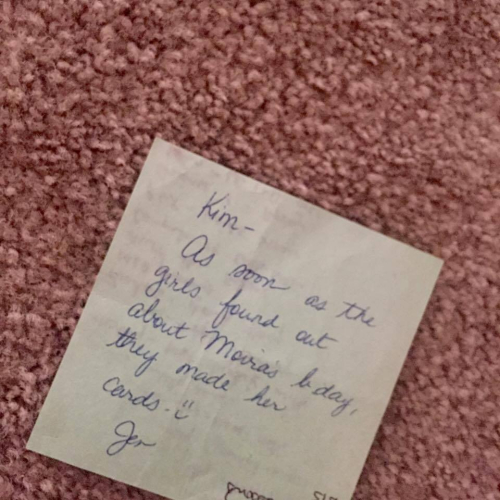 Kim-
As soon as the
girls found out
about Moira's b-day,
they made her
cards. :)
Jen